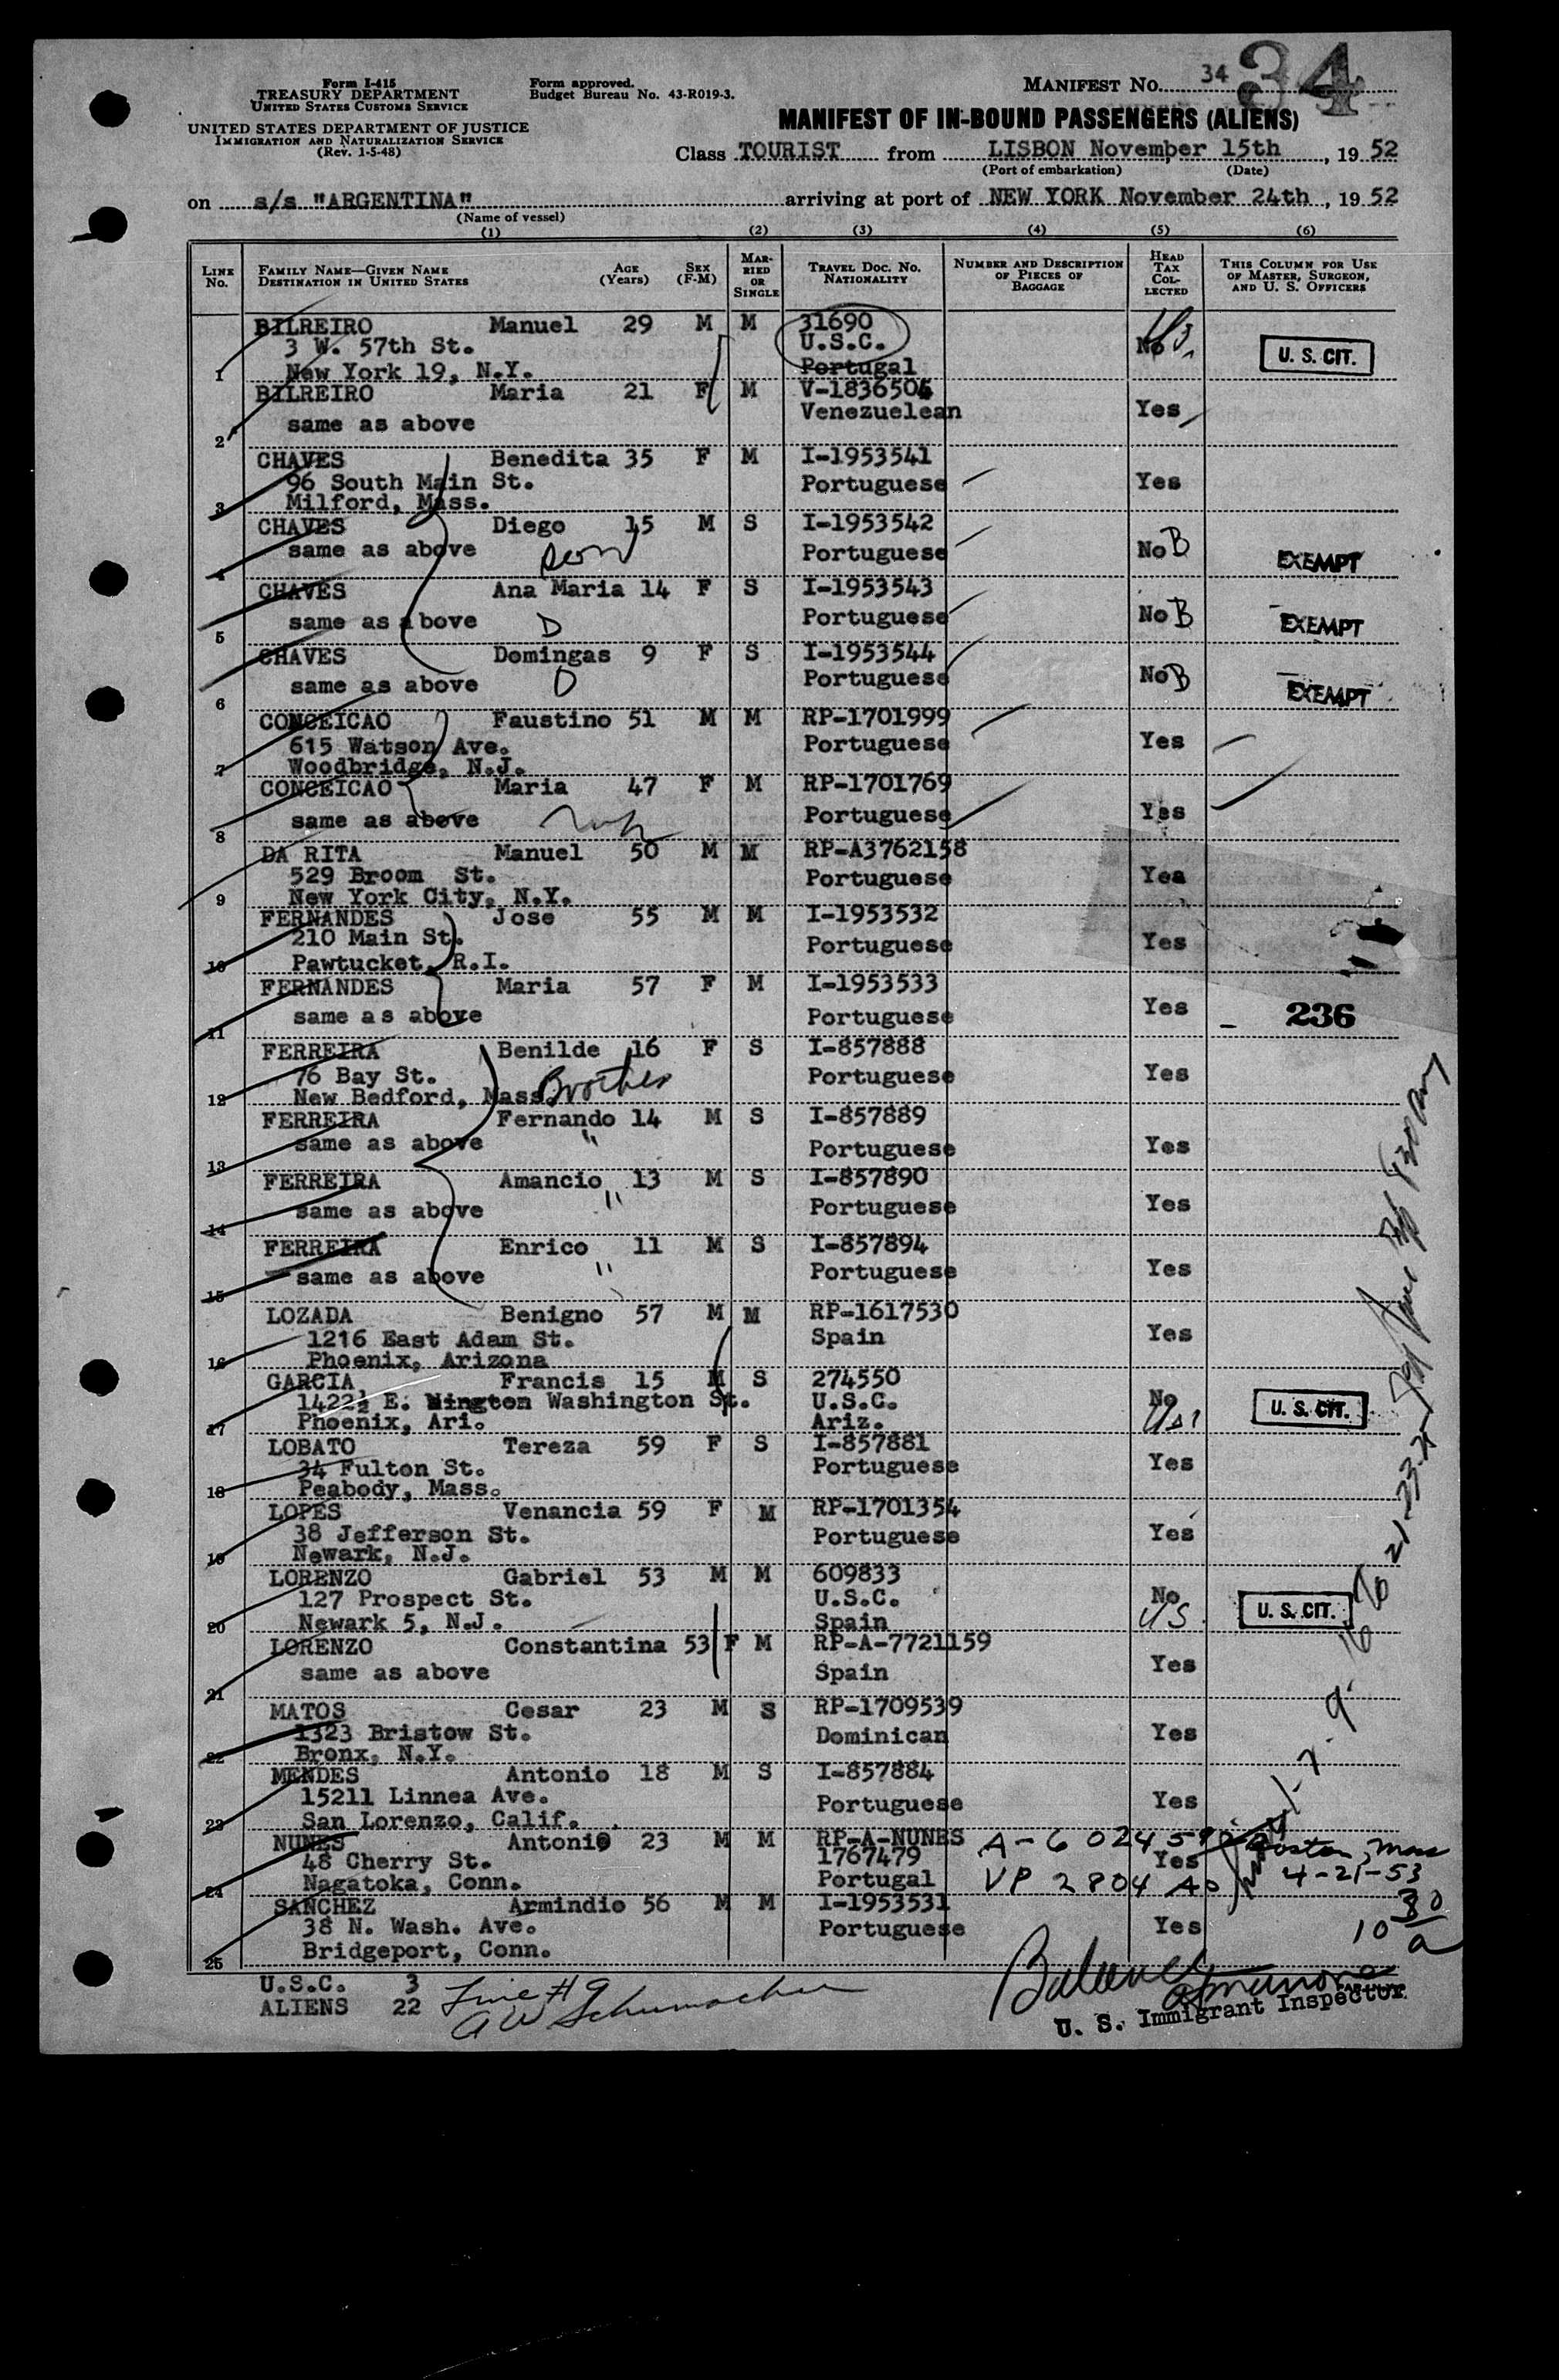 Form I-415
TREASURY DEPARTMENT
UNITED STATES CUSTOMS SERVICE
UNITED STATES DEPARTMENT OF JUSTICE
IMMIGRATION AND NATURALIZATION SERVICE
(Rev. 1-5-48)
Form approved.
Budget Bureau No. 43-R019-3.
MANIFEST No. 34 34
MANIFEST OF IN-BOUND PASSENGERS (ALIENS)
Class TOURIST from LISBON November 15th, 19 52
(Port of embarkation) (Date)
on s/s "ARGENTINA" arriving at port of NEW YORK November 24th, 19 52
(Name of vessel)
(1) (2) (3) (4) (5) (6)
LINE No. FAMILY NAME—GIVEN NAME DESTINATION IN UNITED STATES AGE (Years) SEX (F-M) MARRIED OR SINGLE TRAVEL DOC. NO. NATIONALITY NUMBER AND DESCRIPTION OF PIECES OF BAGGAGE HEAD TAX COLLECTED THIS COLUMN FOR USE OF MASTER, SURGEON, AND U. S. OFFICERS
BILREIRO Manuel 29 M M 31690
3 W. 57th St. U.S.C. No U. S. CIT.
1 New York 19, N.Y. Portugal
BILREIRO Maria 21 F M V-1836504
Venezuelean Yes
2 same as above
CHAVES Benedita 35 F M I-1953541
96 South Main St. Portuguese Yes
3 Milford, Mass.
CHAVES Diego 15 M S I-1953542
4 same as above son Portuguese No B EXEMPT
CHAVES Ana Maria 14 F S I-1953543
5 same as above D Portuguese No B EXEMPT
CHAVES Domingas 9 F S I-1953544
6 same as above D Portuguese No B EXEMPT
CONCEICAO Faustino 51 M M RP-1701999
615 Watson Ave. Portuguese Yes
7 Woodbridge, N.J.
CONCEICAO Maria 47 F M RP-1701769
8 same as above Portuguese Yes
DA RITA Manuel 50 M M RP-A3762158
529 Broom St. Portuguese Yea
9 New York City, N.Y.
FERNANDES Jose 55 M M I-1953532
210 Main St. Portuguese Yes
10 Pawtucket, R.I.
FERNANDES Maria 57 F M I-1953533
11 same as above Portuguese Yes 236
FERREIRA Benilde 16 F S I-857888
76 Bay St. Portuguese Yes
12 New Bedford, Mass. Brother
FERREIRA Fernando 14 M S I-857889
13 same as above " Portuguese Yes
FERREIRA Amancio 13 M S I-857890
14 same as above " Portuguese Yes
FERREIRA Enrico 11 M S I-857894
15 same as above " Portuguese Yes
LOZADA Benigno 57 M M RP-1617530
1216 East Adam St. Spain Yes
16 Phoenix, Arizona
GARCIA, Francis 15 M S 274550
1422½ E. Washington St. U.S.C. No U. S. CIT.
17 Phoenix, Ari. Ariz.
LOBATO Tereza 59 F S I-857881
34 Fulton St. Portuguese Yes
18 Peabody, Mass.
LOPES Venancia 59 F M RP-1701354
38 Jefferson St. Portuguese Yes
19 Newark, N.J.
LORENZO Gabriel 53 M M 609833
127 Prospect St. U.S.C. No US U. S. CIT.
20 Newark 5, N.J. Spain
LORENZO Constantina 53 F M RP-A-7721159
21 same as above Spain Yes
MATOS Cesar 23 M S RP-1709539
1323 Bristow St. Dominican Yes
22 Bronx, N.Y.
MENDES Antonio 18 M S I-857884
15211 Linnea Ave. Portuguese Yes
23 San Lorenzo, Calif.
NUNES Antonio 23 M M RP-A-NUNES
48 Cherry St. 1767479 Yes Boston, Mass
24 Nagatoka, Conn. Portugal VP 2804 4-21-53
SANCHEZ Armindio 56 M M I-1953531
38 N. Wash. Ave. Portuguese Yes
25 Bridgeport, Conn.
U.S.C. 3
ALIENS 22
Line #9
A W Schumacher
Balance
U. S. Immigrant Inspector